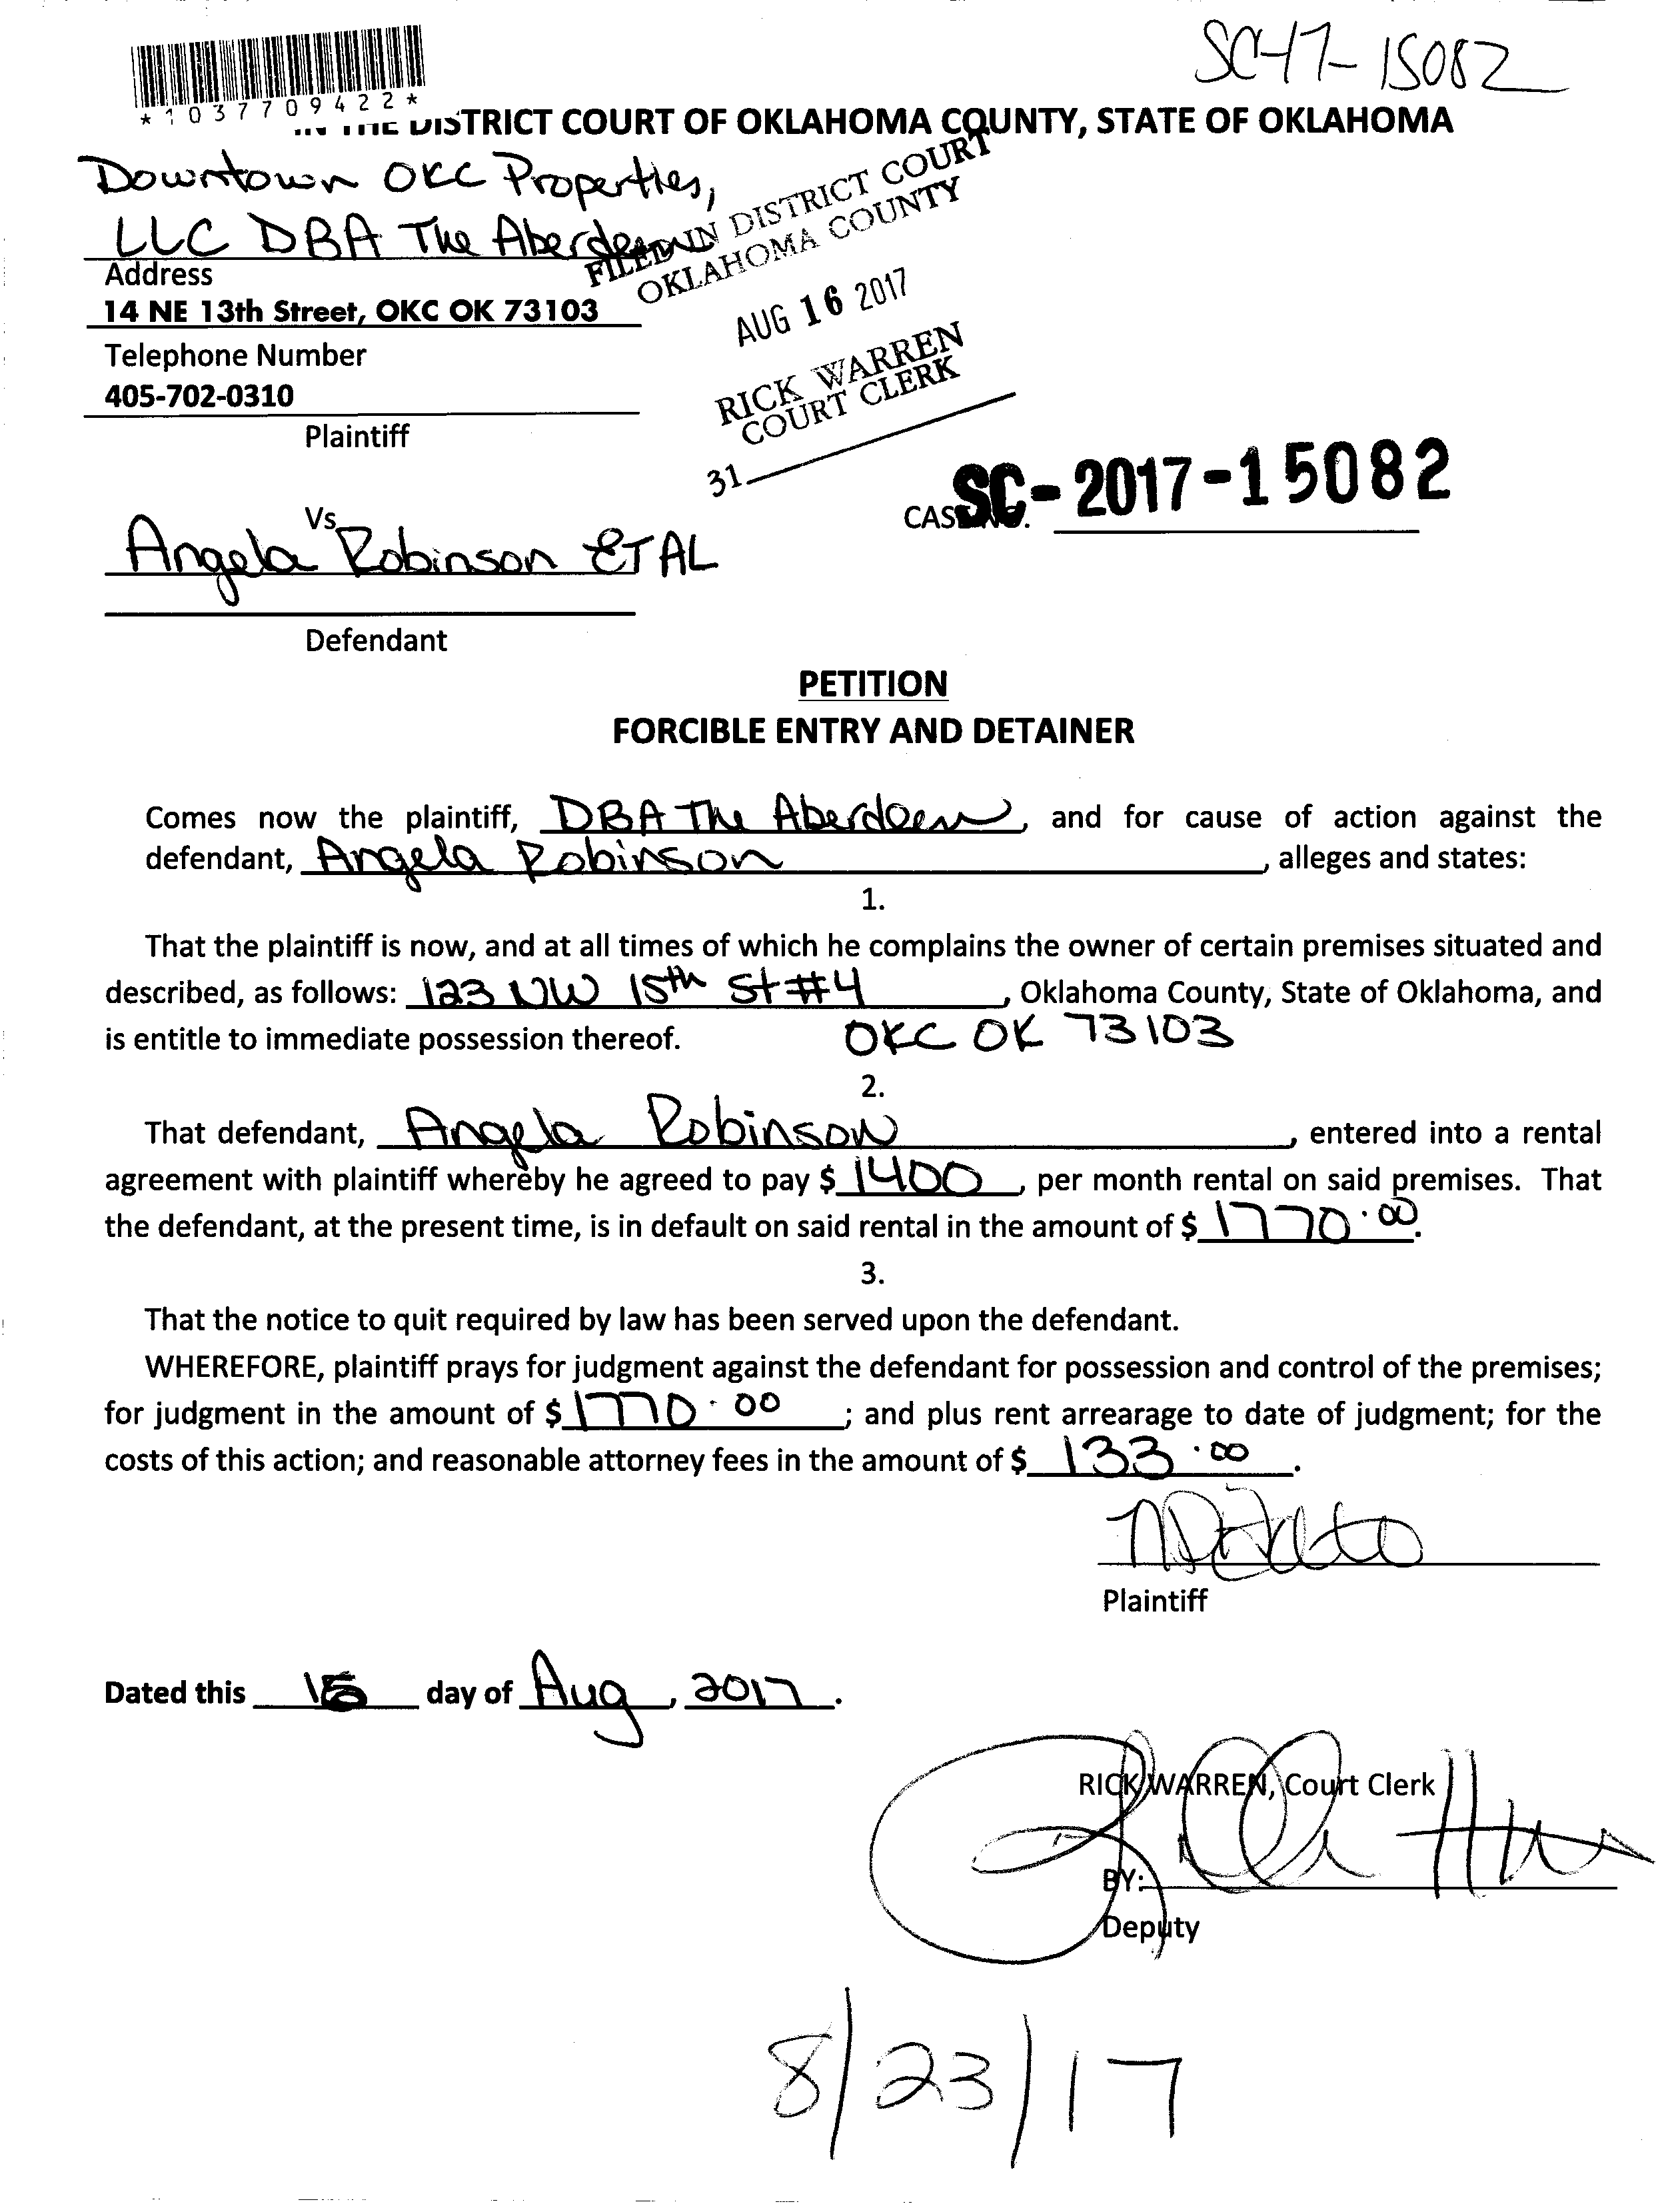 SC-17-15082
*1037709422*
IN THE DISTRICT COURT OF OKLAHOMA COUNTY, STATE OF OKLAHOMA
Downtown OKC Properties,
LLC DBA The Aberdeen
FILED IN DISTRICT COURT
OKLAHOMA COUNTY
Address
14 NE 13th Street, OKC OK 73103
AUG 16 2017
Telephone Number
405-702-0310
RICK WARREN
COURT CLERK
Plaintiff
31
Vs
CASE NO. SC-2017-15082
Angela Robinson ET AL
Defendant
PETITION
FORCIBLE ENTRY AND DETAINER
Comes now the plaintiff, DBA The Aberdeen, and for cause of action against the
defendant, Angela Robinson, alleges and states:
1.
That the plaintiff is now, and at all times of which he complains the owner of certain premises situated and
described, as follows: 123 NW 15th St #4, Oklahoma County, State of Oklahoma, and
is entitle to immediate possession thereof. OKC OK 73103
2.
That defendant, Angela Robinson, entered into a rental
agreement with plaintiff whereby he agreed to pay $ 1400, per month rental on said premises. That
the defendant, at the present time, is in default on said rental in the amount of $ 1770.00.
3.
That the notice to quit required by law has been served upon the defendant.
WHEREFORE, plaintiff prays for judgment against the defendant for possession and control of the premises;
for judgment in the amount of $ 1770.00; and plus rent arrearage to date of judgment; for the
costs of this action; and reasonable attorney fees in the amount of $ 133.00.
Plaintiff
Dated this day of Aug, 2017.
RICK WARREN, Court Clerk
BY:
Deputy
8/23/17